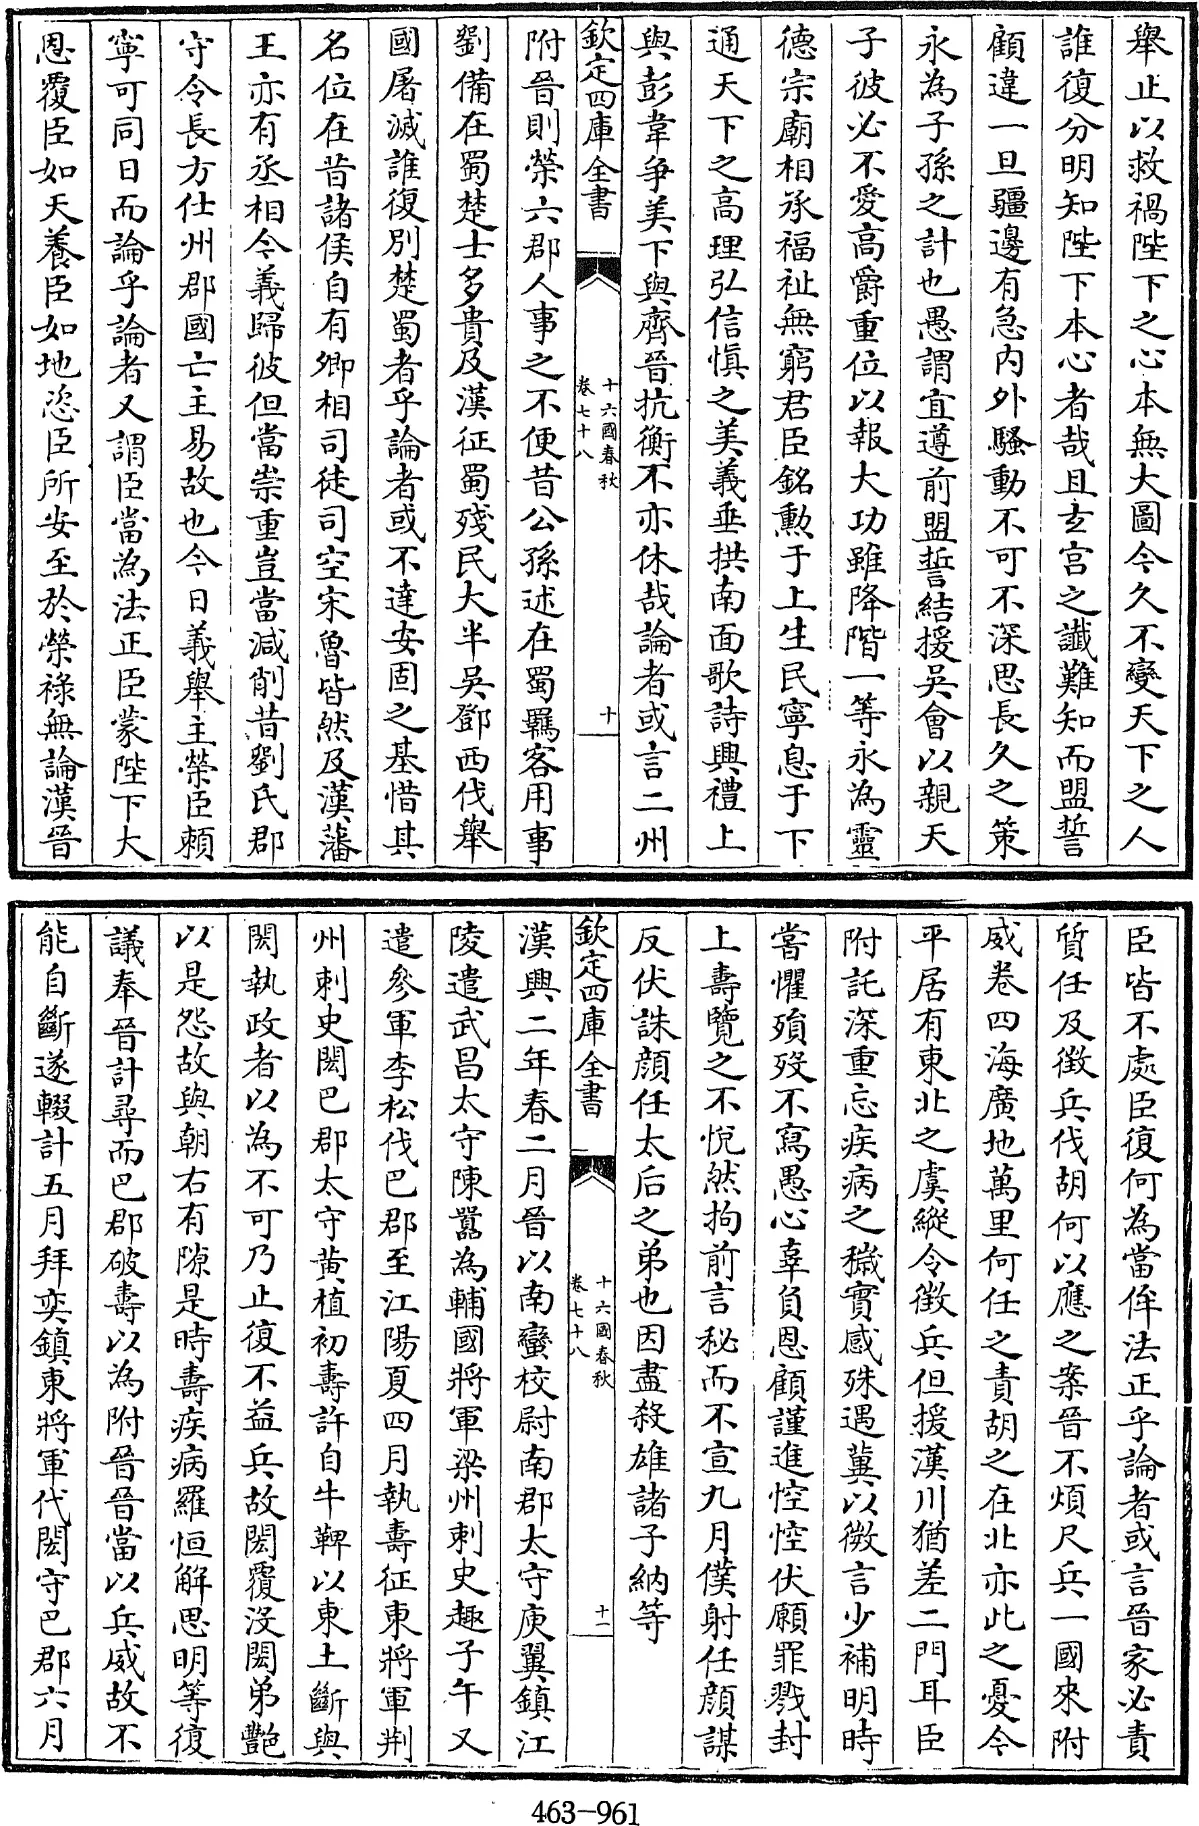 舉止以救禍陛下之心本無大圖今久不變天下之人
誰復分明知陛下本心者哉且玄宮之讖難知而盟誓
顧違一旦疆邊有急內外騷動不可不深思長久之策
永為子孫之計也愚謂宜遵前盟誓結援吳會以親天
子彼必不愛高爵重位以報大功雖降階一等永為靈
德宗廟相承福祉無窮君臣銘勲于上生民寧息于下
通天下之高理弘信慎之美義垂拱南面歌詩興禮上
與彭韋爭美下與齊晉抗衡不亦休哉論者或言二州
欽定四庫全書
十六國春秋
卷七十八
十
附晉則榮六郡人事之不便昔公孫述在蜀羈客用事
劉備在蜀楚士多貴及漢征蜀殘民大半吳鄧西伐舉
國屠滅誰復別楚蜀者乎論者或不達安固之基惜其
名位在昔諸侯自有卿相司徒司空宋魯皆然及漢藩
王亦有丞相今義歸彼但當崇重豈當減削昔劉氏郡
守令長方仕州郡國亡主易故也今日義舉主榮臣賴
寧可同日而論乎論者又謂臣當為法正臣蒙陛下大
恩覆臣如天養臣如地恣臣所安至於榮祿無論漢晉
臣皆不處臣復何為當侔法正乎論者或言晉家必責
質任及徵兵伐胡何以應之案晉不煩尺兵一國來附
威卷四海廣地萬里何任之責胡之在北亦此之憂今
平居有東北之虞縱令徵兵但援漢川猶差二門耳臣
附託深重忘疾病之穢實感殊遇冀以微言少補明時
嘗懼殞歿不寫愚心辜負恩顧謹進悾悾伏願罪戮封
上壽覽之不悅然拘前言秘而不宣九月僕射任顔謀
反伏誅顔任太后之弟也因盡殺雄諸子納等
欽定四庫全書
十六國春秋
卷七十八
十一
漢興二年春二月晉以南蠻校尉南郡太守庾翼鎮江
陵遣武昌太守陳囂為輔國將軍梁州刺史趣子午又
遣參軍李松伐巴郡至江陽夏四月執壽征東將軍荆
州刺史閎巴郡太守黄植初壽許自牛鞞以東土斷與
閎執政者以為不可乃止復不益兵故閎覆沒閎弟豔
以是怨故與朝右有隙是時壽疾病羅恒解思明等復
議奉晉計尋而巴郡破壽以為附晉晉當以兵威故不
能自斷遂輟計五月拜奕鎮東將軍代閎守巴郡六月
463-961